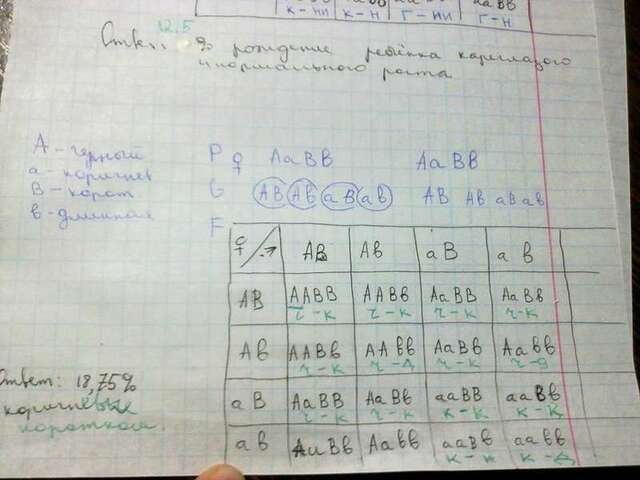 к-нн к-н г-нн г-н
12,5
Ответ: % рождение ребёнка кареглазого
и нормального роста
А - черный
а - коричнев
В - корот
в - длинная
P ♀ АаВВ АаВВ
G АВ Ав аВ ав АВ Ав аВ ав
F
♀ АВ Ав аВ ав
АВ ААВВ ААВв АаВВ АаВв
ч-к ч-к ч-к ч-к
Ав ААВв ААвв АаВв Аавв
ч-к ч-д ч-к ч-д
аВ АаВВ АаВв ааВВ ааВв
ч-к ч-к к-к к-к
ав АаВв Аавв ааВв аавв
к-к к-д
Ответ: 18,75%
коричневых
коротком.